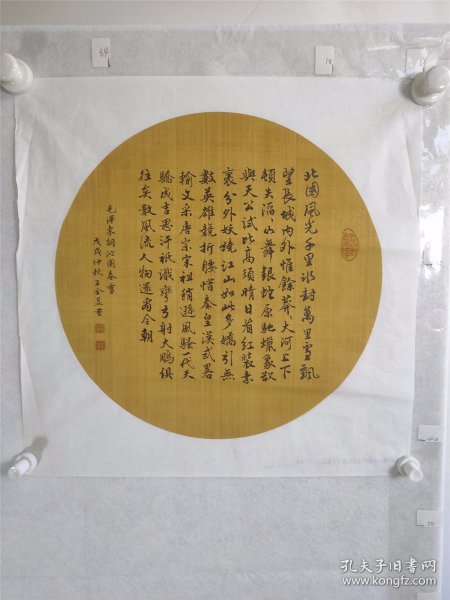 北國風光千里冰封萬里雪飄
望長城內外惟餘莽〻大河上下
頓失滔〻山舞銀蛇原馳蠟象欲
與天公試比高須晴日看紅裝素
裹分外妖嬈江山如此多嬌引無
數英雄競折腰惜秦皇漢武畧
輸文采唐宗宋祖稍遜風騷一代天
驕成吉思汗祇識彎弓射大鵰俱
往矣數風流人物還看今朝
毛澤東詞沁園春雪
戊戌仲秋王金書
孔夫子旧书网
www.kongfz.com